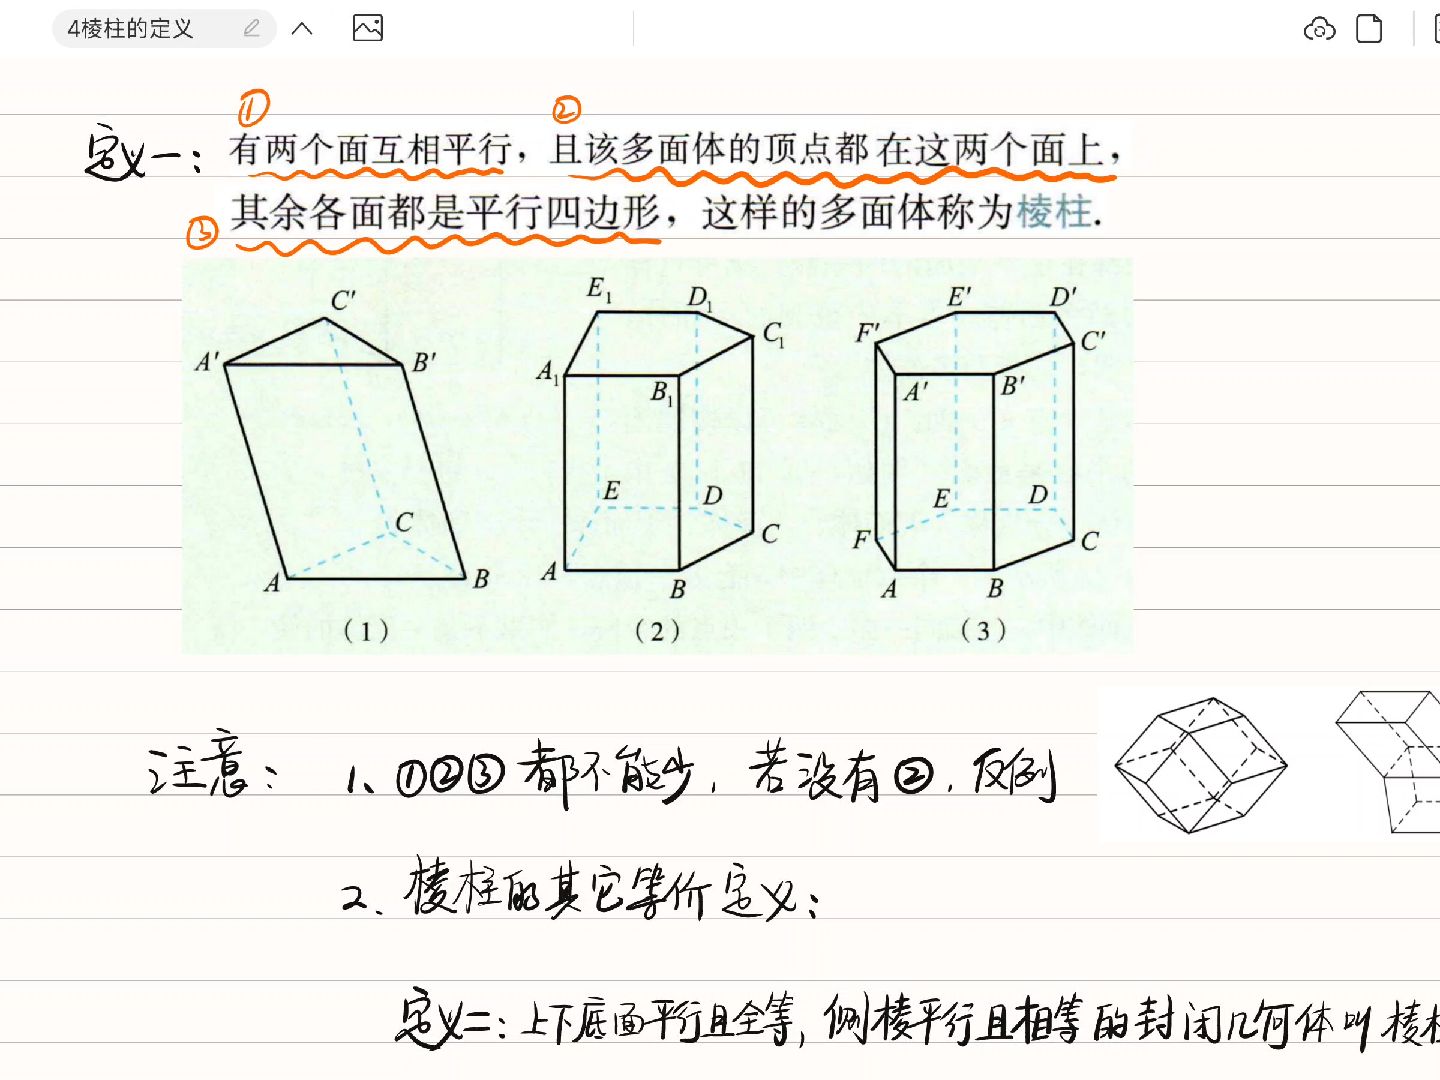 4棱柱的定义
① ②
定义一：有两个面互相平行，且该多面体的顶点都在这两个面上，
③其余各面都是平行四边形，这样的多面体称为棱柱.
C' A' B' C A B
E₁ D₁ C₁ A₁ B₁ E D C A B
E' D' F' C' A' B' E D F C A B
（1） （2） （3）
注意：1、①②③都不能少，若没有②，反例
2、棱柱的其它等价定义：
定义二：上下底面平行且全等，侧棱平行且相等的封闭几何体叫棱柱